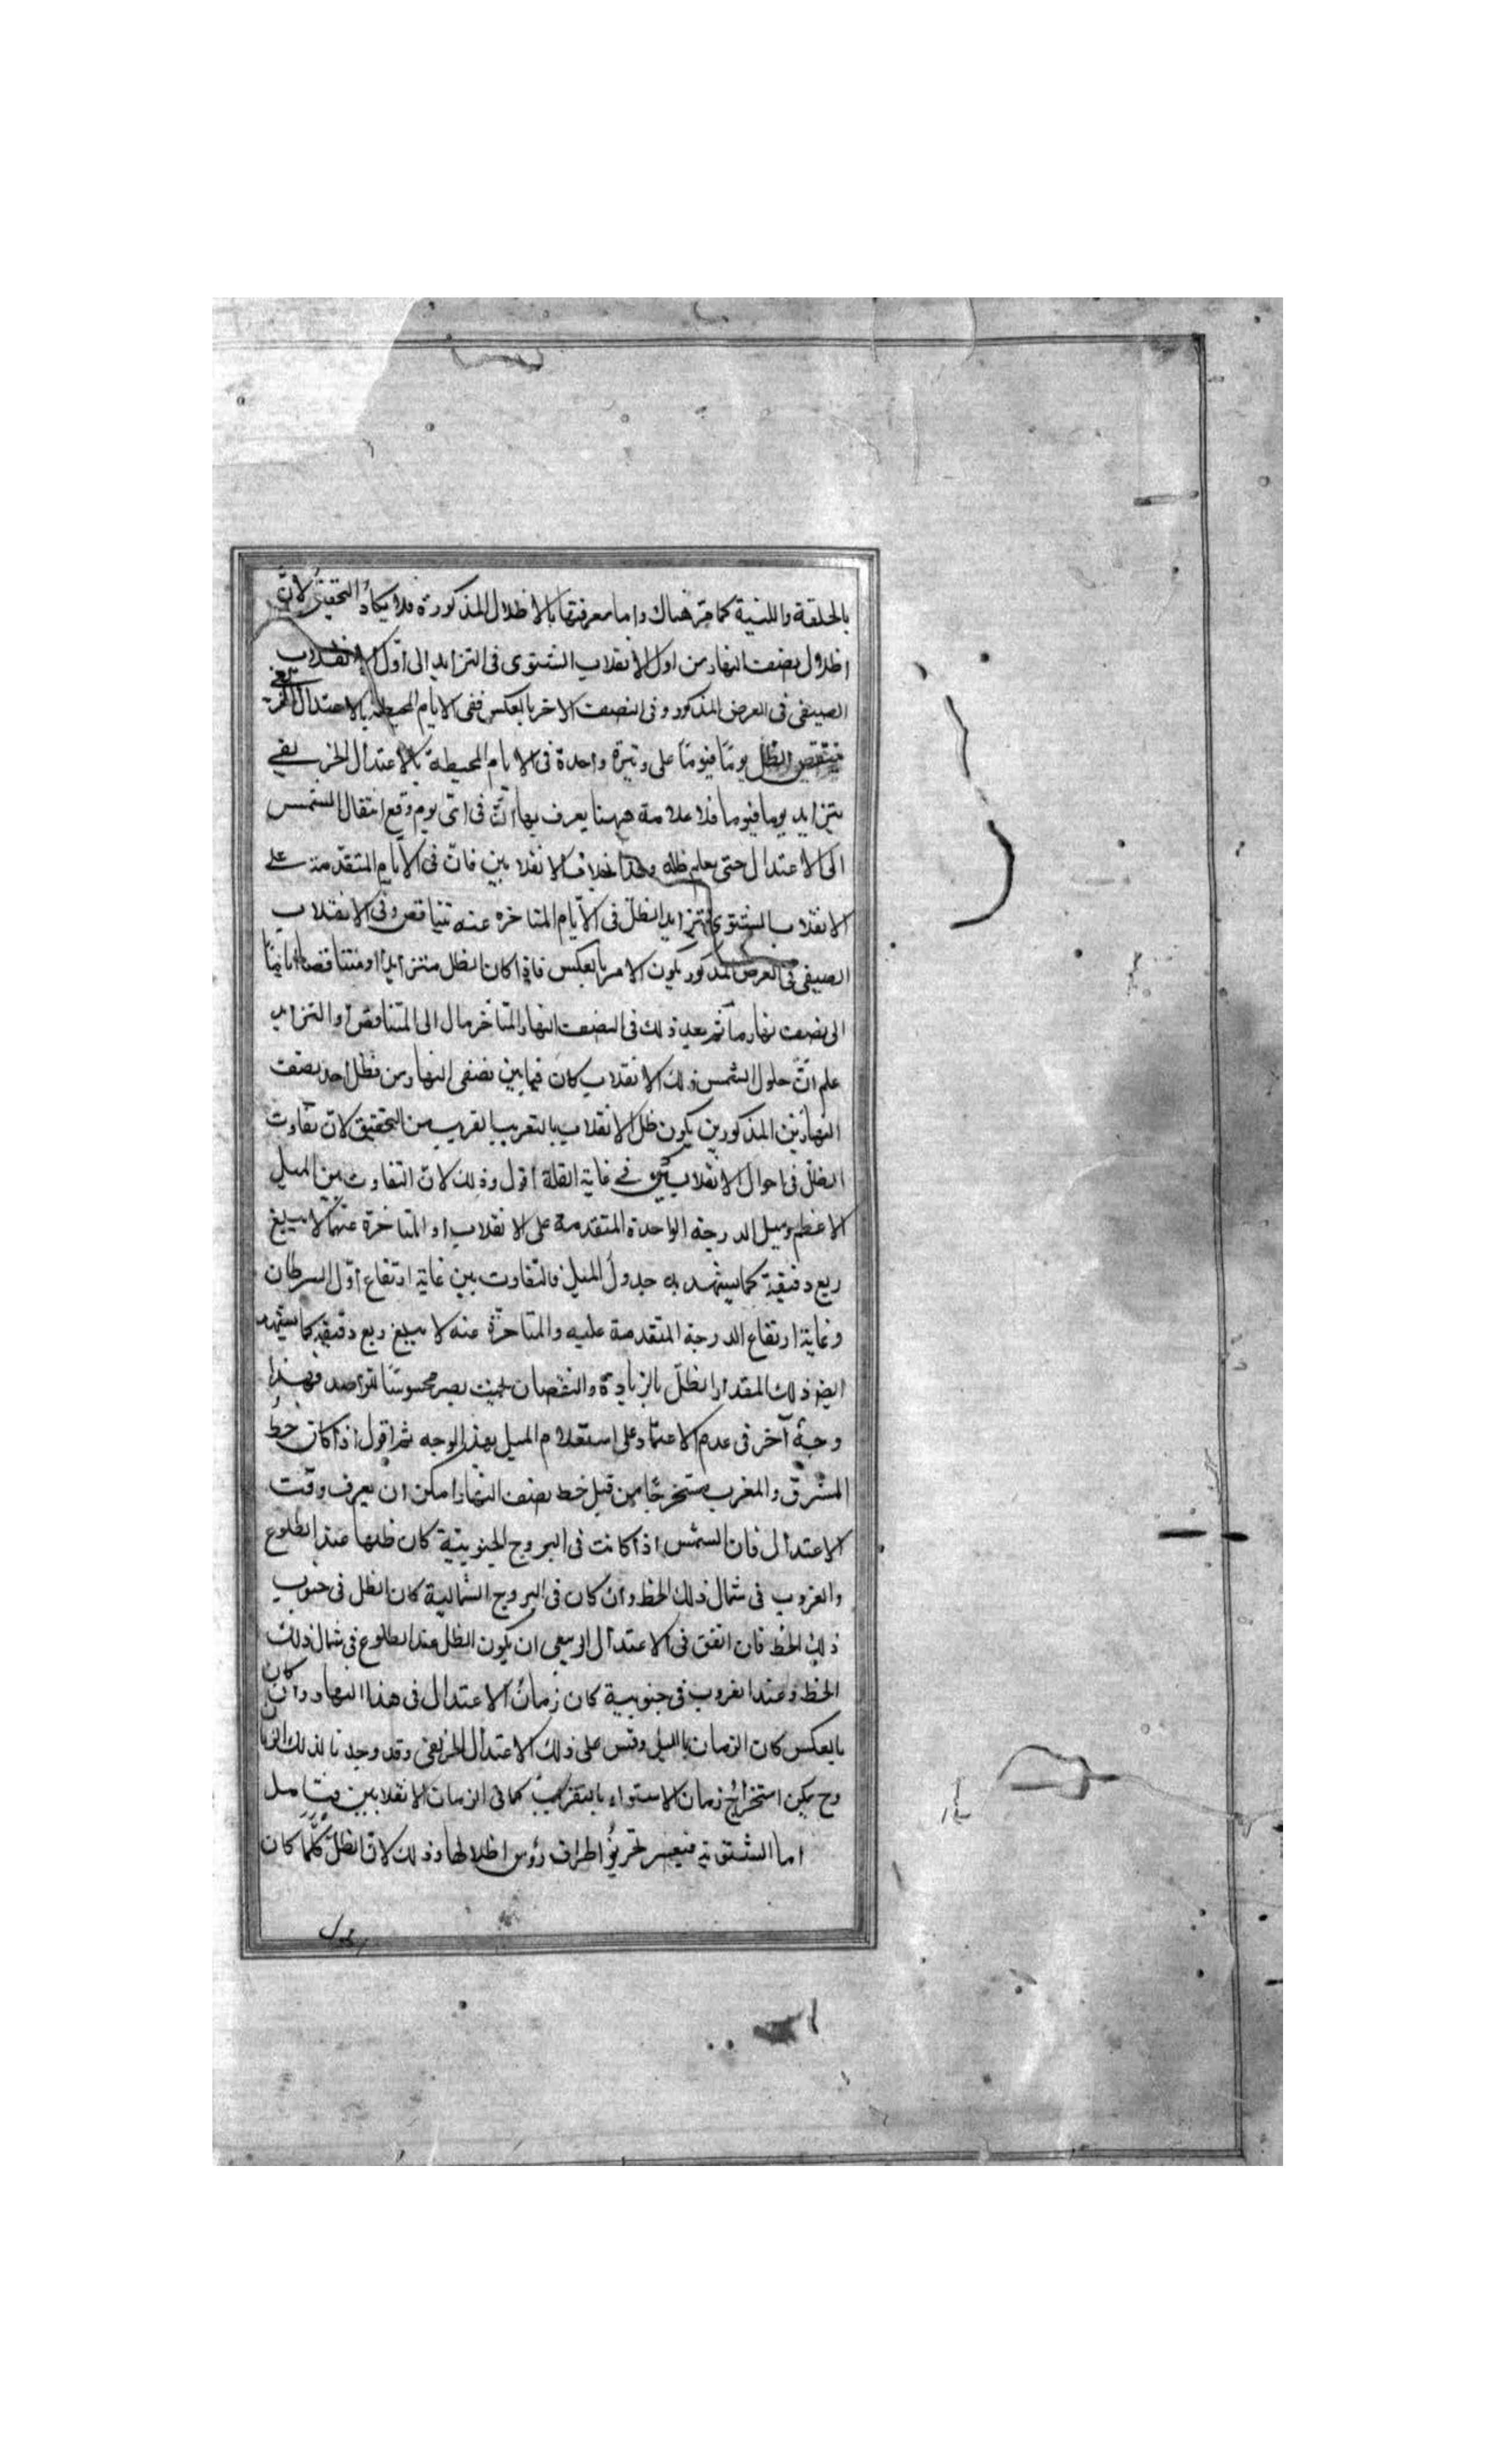 بالحلقة واللبنة كما مر هناك واما معرفتها بالاظلال المذكورة فلا يكاد التحقيق لانّ
اظلال نصف النهار من اول الانقلاب الشتوى فى التزايد الى اوّل الانقلاب
الصيفى فى العرض المذكور وفى النصف الاخر بالعكس ففى الايام المحيطة بالاعتدال
الظل يومًا فيومًا على وتيرة واحدة فى الايام المحيطة بالاعتدال الخريفي
يتزايد يوما فيوما فلا علامة ههنا يعرف بها انّ فى اىّ يوم وقع انتقال الشمس
الى الاعتدال حتى يعلم ظله وهذا بخلاف الانقلابين فانّ فى الايام المتقدمة على
الانقلاب الشتوى يتزايد الظلّ فى الايام المتاخره عنه يتناقص وفى الانقلاب
الصيفى فى العرض المذكور يكون الامر بالعكس فاذا كان الظل متزايدًا او متناقصا
الى نصف نهار ما ثم بعد ذلك فى النصف النهار المتاخر مال الى التناقص او التزايد
علم انّ حلول الشمس ذلك الانقلاب كان فيما بين نصفى النهار من فظل احد نصف
النهارين المذكورين يكون ظل الانقلاب بالتقريب القريب من التحقيق لانّ تفاوت
الظلّ فى احوال الانقلابين في غاية القلة اقول وذلك لانّ التفاوت بين الميل
الاعظم وميل الدرجة الواحدة المتقدمة على الانقلاب او المتاخرة عنها لا يبلغ
ربع دقيقة كما يشهد به جدول الميل فالتفاوت بين غاية ارتفاع اوّل السرطان
وغاية ارتفاع الدرجة المتقدمة عليه والمتاخرة عنه لا يبلغ ربع دقيقة كما يشهد
ايضا ذلك المقدار الظلّ بالزيادة والنقصان بحيث يصير محسوسًا للراصد فهذا
وجهٌ آخر فى عدم الاعتماد على استعلام الميل بهذا الوجه ثم اقول اذا كان خط
المشرق والمغرب مستخرجًا من قبل خط نصف النهار امكن ان يعرف وقت
الاعتدال فان الشمس اذا كانت فى البروج الجنوبية كان ظلها عند الطلوع
والغروب فى شمال ذلك الخط وان كان فى البروج الشمالية كان الظل فى جنوب
ذلك الخط فان اتفق فى الاعتدال الربيعى ان يكون الظل عند الطلوع فى شمال ذلك
الخط وعند الغروب فى جنوبية كان زمان الاعتدال فى هذا النهار وان كان
بالعكس كان الزمان بالليل وقس على ذلك الاعتدال الخريفى وقد وجدنا لذلك
وح يمكن استخراج زمان الاستواء بالتقريب كما فى ازمان الانقلابين فتامل
اما الشتوية فيعسر تحرير اطراف رؤس اظلالها وذلك لانّ الظلّ كلّما كان